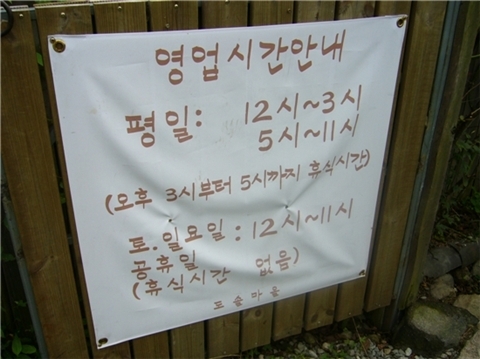 영업시간안내
평일: 12시~3시
5시~11시
(오후 3시부터 5시까지 휴식시간)
토.일요일:12시~11시
공휴일
(휴식시간 없음)
도솔마을